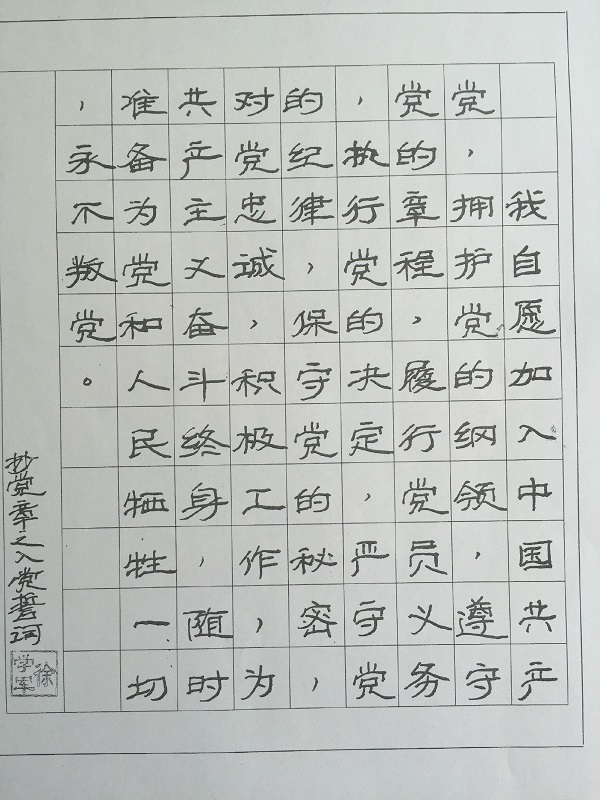 我自愿加入中国共产
党，拥护党的纲领，遵守
党的章程，履行党员义务
，执行党的决定，严守党
的纪律，保守党的秘密，
对党忠诚，积极工作，为
共产主义奋斗终身，随时
准备为党和人民牺牲一切
，永不叛党。
抄党章之入党誓词
徐学军